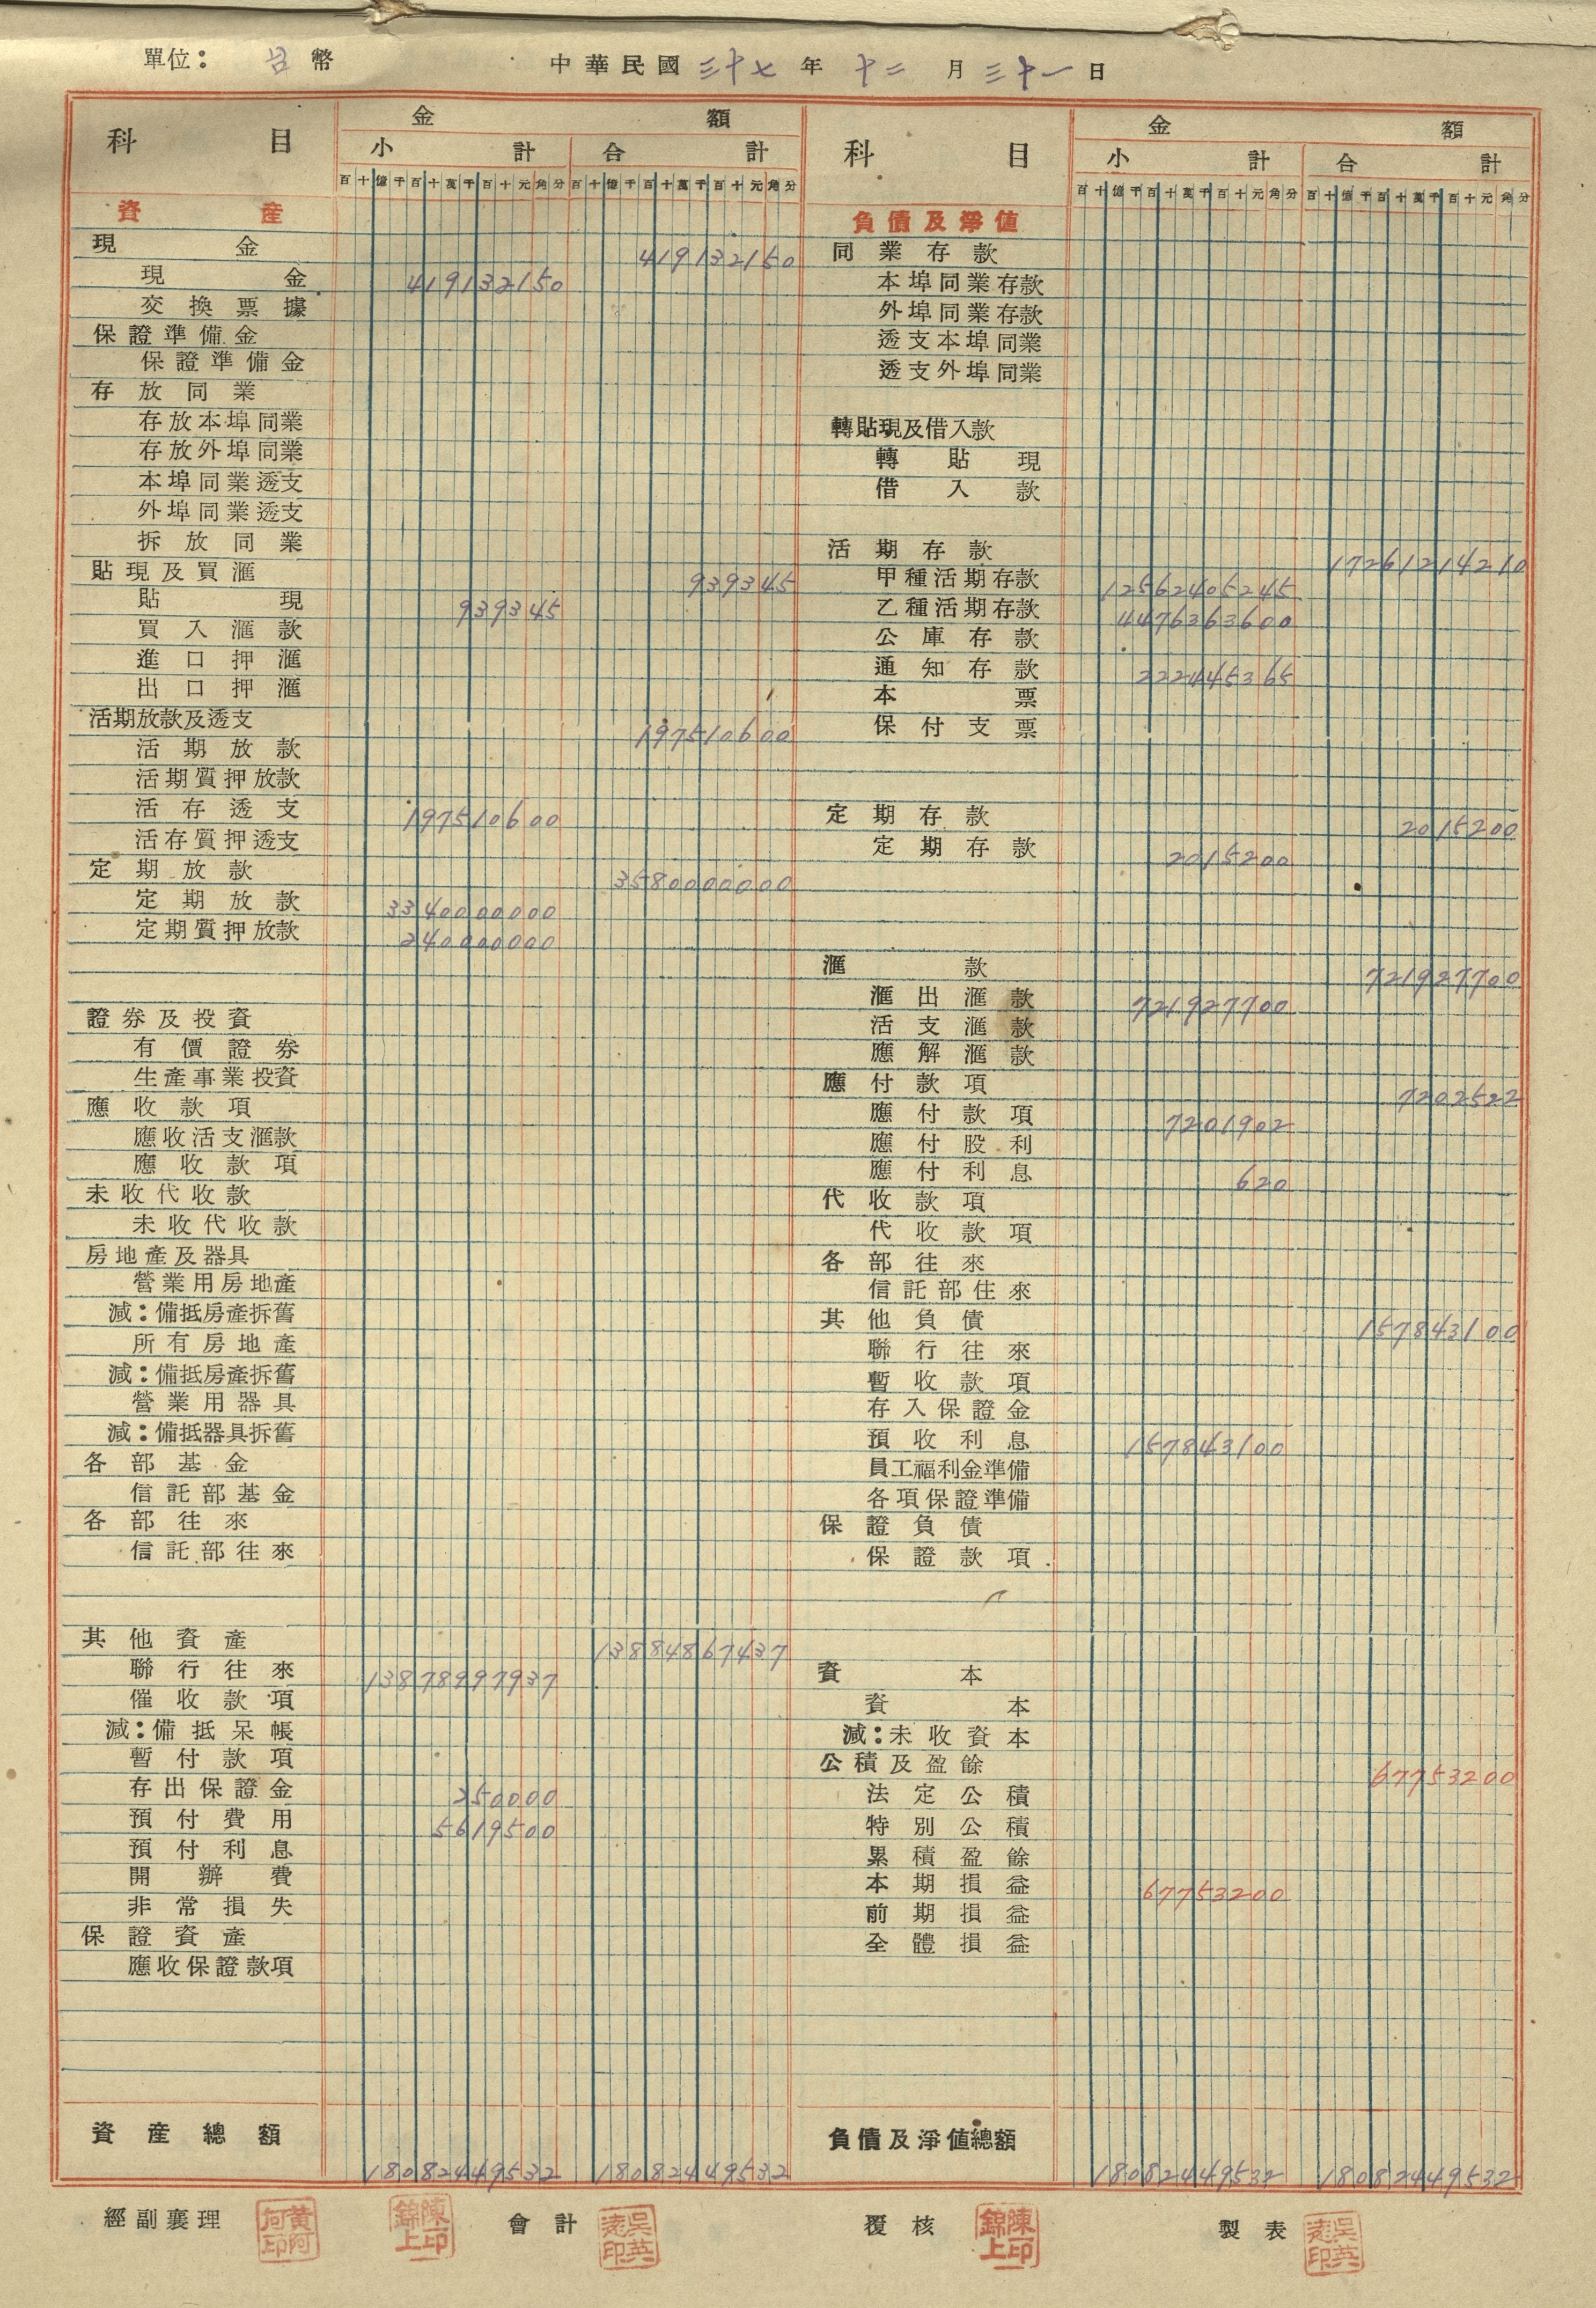 單位：台幣 中華民國三十七年十二月三十一日
科目 金額
小計 合計
百十億千百十萬千百十元角分 百十億千百十萬千百十元角分
資產
現金 419132150
現金 419132150
交換票據
保證準備金
保證準備金
存放同業
存放本埠同業
存放外埠同業
本埠同業透支
外埠同業透支
拆放同業
貼現及買滙 939345
貼現 939345
買入滙款
進口押滙
出口押滙
活期放款及透支 197510600
活期放款
活期質押放款
活存透支 197510600
活存質押透支
定期放款 3580000000
定期放款 3340000000
定期質押放款 240000000
證券及投資
有價證券
生產事業投資
應收款項
應收活支滙款
應收款項
未收代收款
未收代收款
房地產及器具
營業用房地產
減：備抵房產拆舊
所有房地產
減：備抵房產拆舊
營業用器具
減：備抵器具拆舊
各部基金
信託部基金
各部往來
信託部往來
其他資產 13884867437
聯行往來 13878997937
催收款項
減：備抵呆帳
暫付款項
存出保證金 250000
預付費用 5619500
預付利息
開辦費
非常損失
保證資產
應收保證款項
資產總額 18082449532 18082449532
科目 金額
小計 合計
百十億千百十萬千百十元角分 百十億千百十萬千百十元角分
負債及淨值
同業存款
本埠同業存款
外埠同業存款
透支本埠同業
透支外埠同業
轉貼現及借入款
轉貼現
借入款
活期存款 17261214210
甲種活期存款 12562405245
乙種活期存款 4476363600
公庫存款
通知存款 222445365
本票
保付支票
定期存款 2015200
定期存款 2015200
滙款 721927700
滙出滙款 721927700
活支滙款
應解滙款
應付款項 7202522
應付款項 7201902
應付股利
應付利息 620
代收款項
代收款項
各部往來
信託部往來
其他負債 157843100
聯行往來
暫收款項
存入保證金
預收利息 157843100
員工福利金準備
各項保證準備
保證負債
保證款項
資本
資本
減：未收資本
公積及盈餘 67753200
法定公積
特別公積
累積盈餘
本期損益 67753200
前期損益
全體損益
負債及淨值總額 18082449532 18082449532
經副襄理 會計 覆核 製表